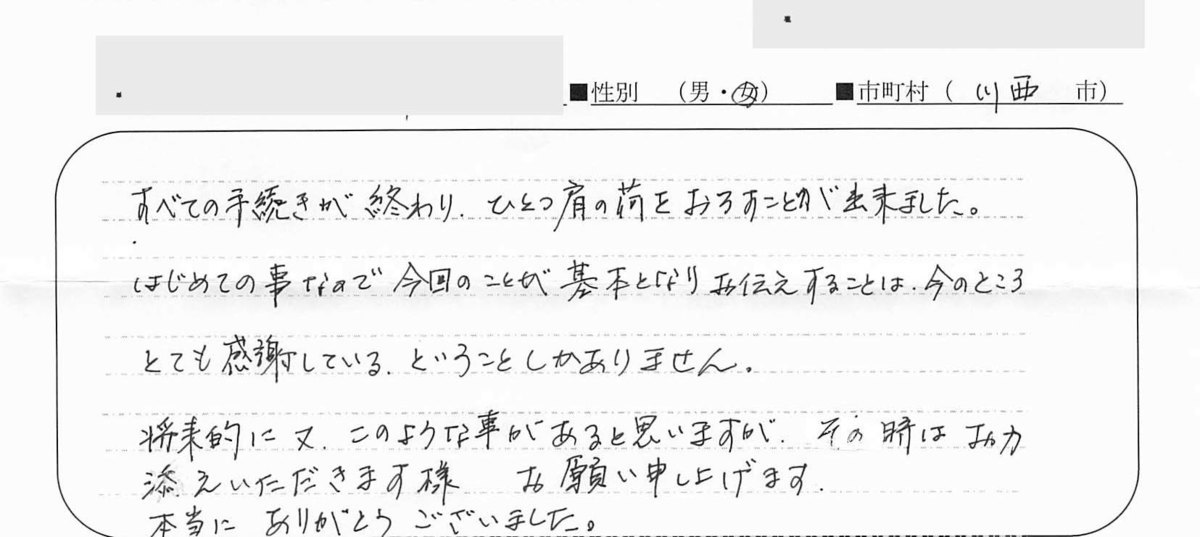 ■性別　（男・女）　■市町村（　川西　市）
すべての手続きが終わり、ひとつ肩の荷をおろすことが出来ました。
はじめての事なので今回のことが基本となりお伝えすることは、今のところ
とても感謝している、ということしかありません。
将来的に又、このような事があると思いますが、その時はお力
添えいただきます様　お願い申し上げます。
本当に ありがとう ございました。